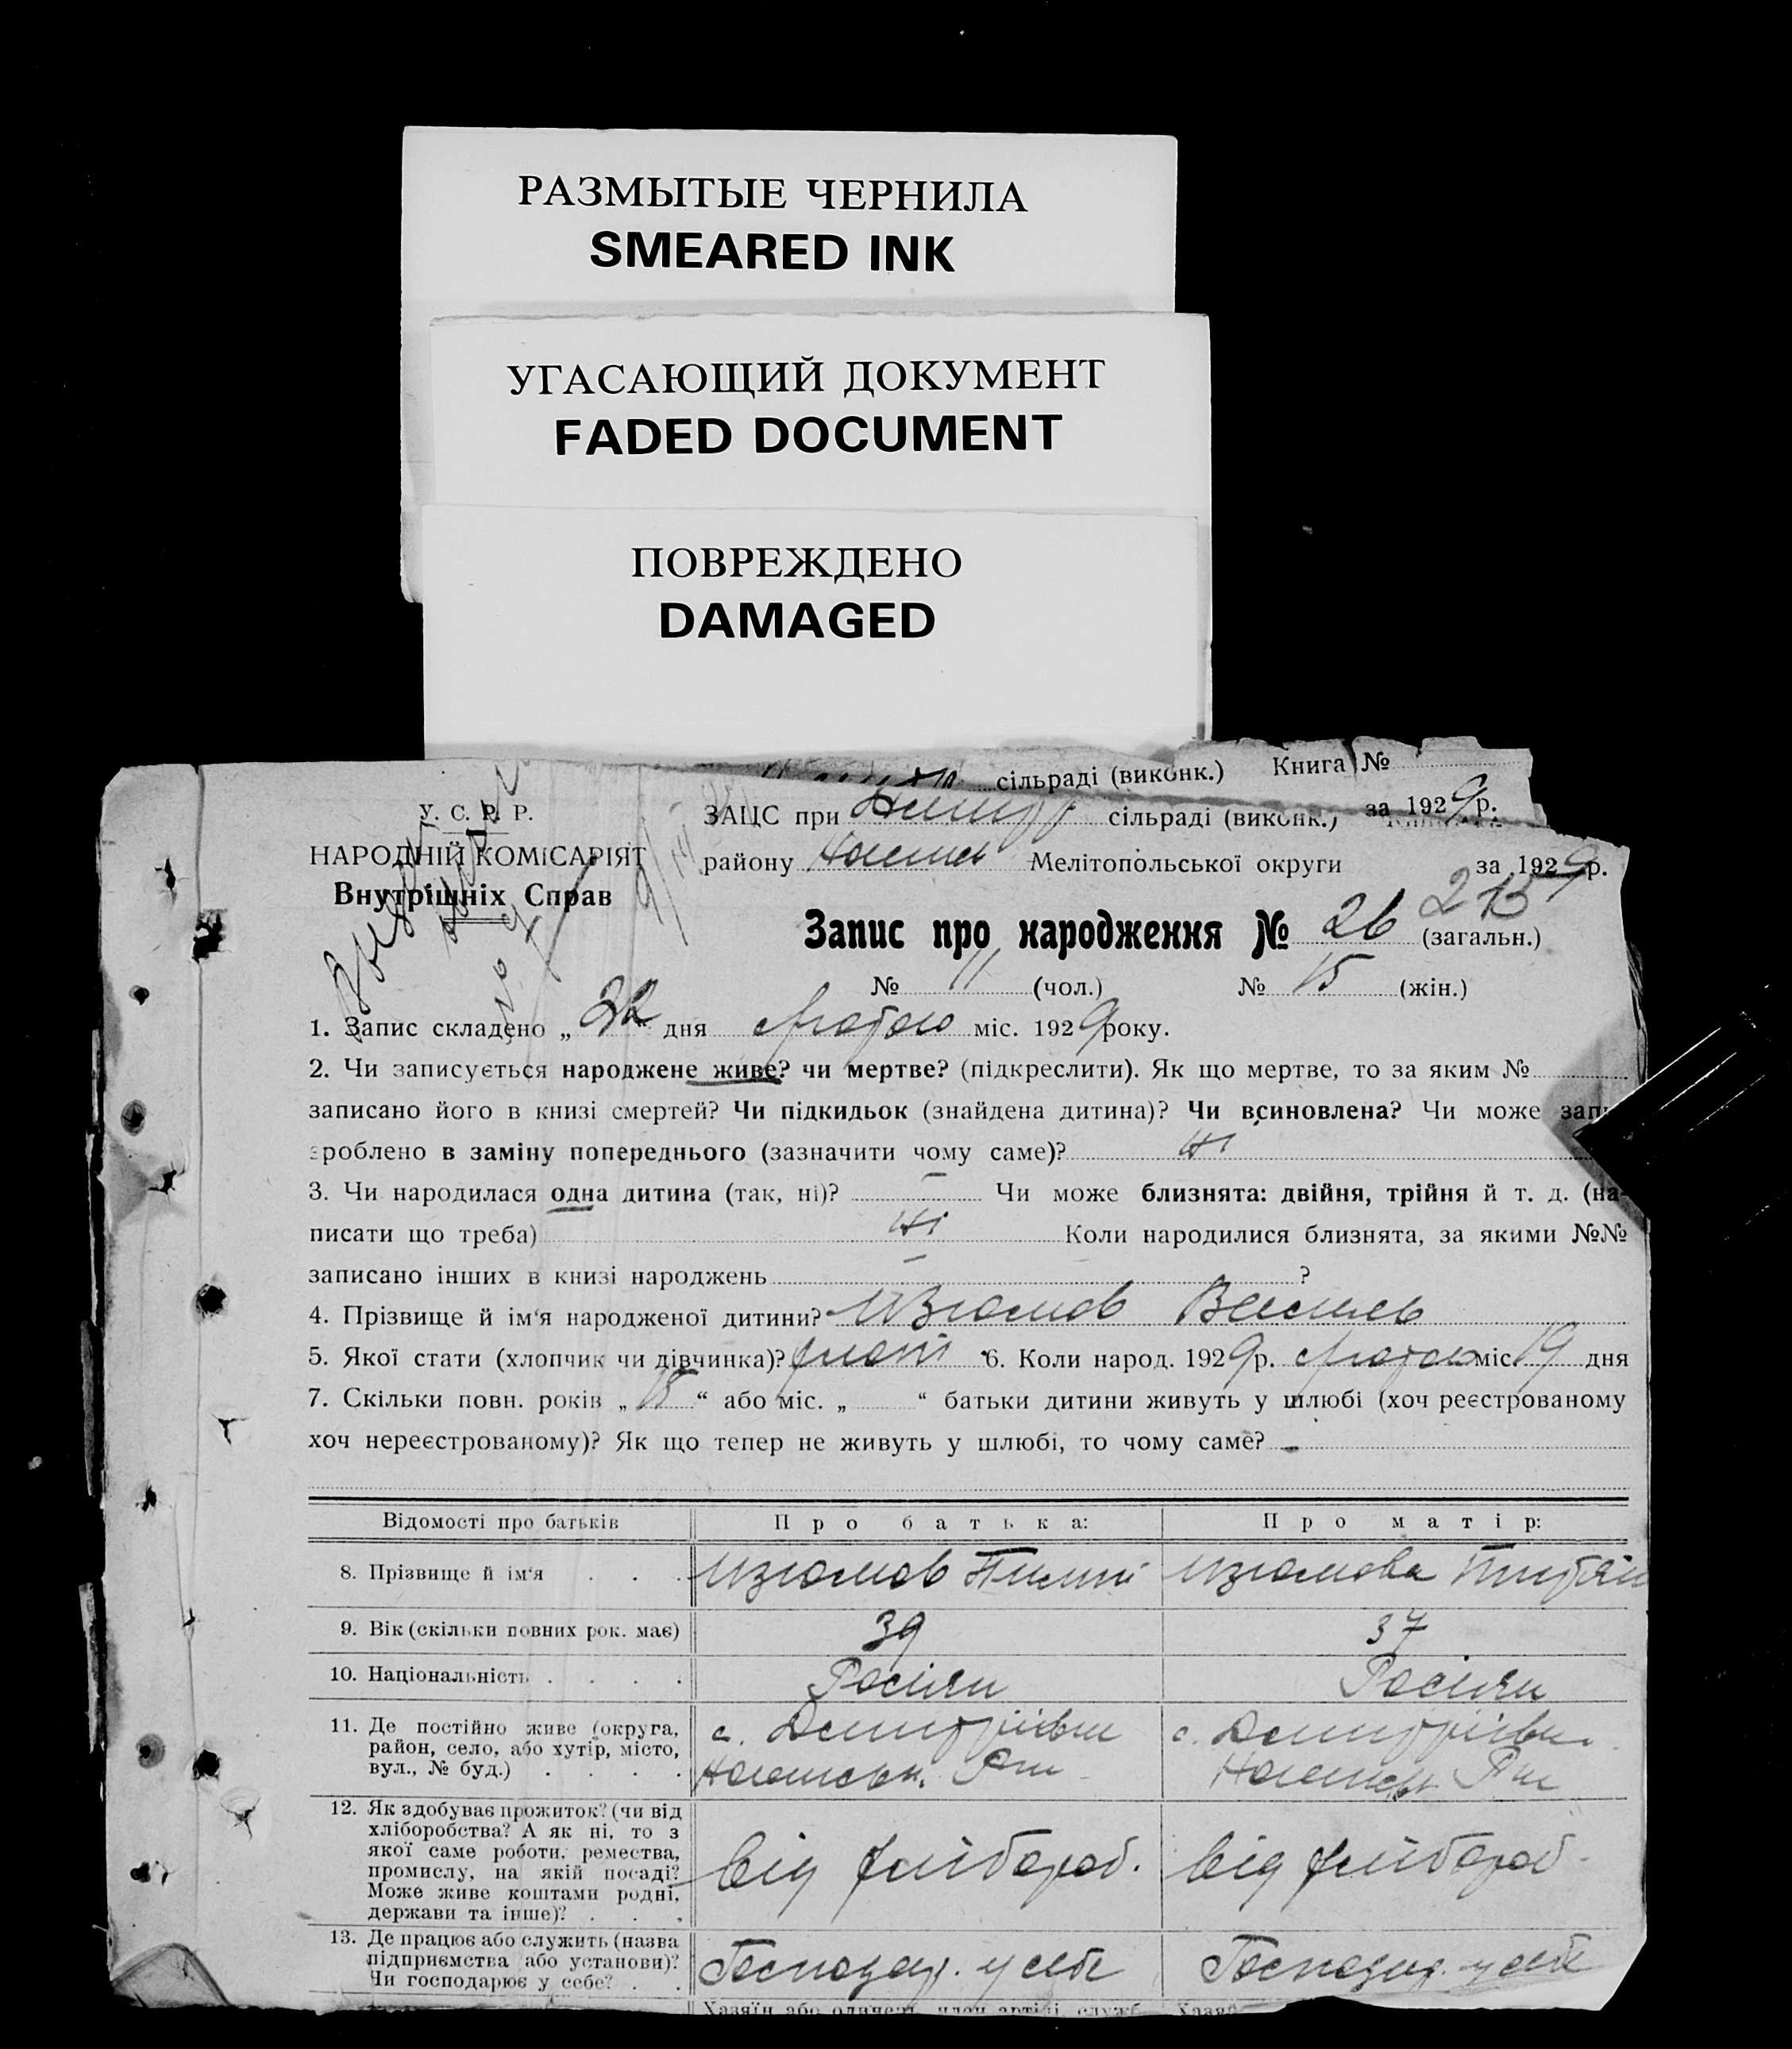 РАЗМЫТЫЕ ЧЕРНИЛА
SMEARED INK
УГАСАЮЩИЙ ДОКУМЕНТ
FADED DOCUMENT
ПОВРЕЖДЕНО
DAMAGED
сільраді (виконк.) Книга №
за 1929 р.
У. С. Р. Р.
НАРОДНІЙ КОМІСАРІЯТ
Внутрішніх Справ
ЗАЦС при сільраді (виконк.)
району Мелітопольської округи за 1929 р.
Запис про народження № 26 (загальн.)
№ 11 (чол.) № 15 (жін.)
1. Запис складено „22“ дня лютого міс. 1929 року.
2. Чи записується народжене живе? чи мертве? (підкреслити). Як що мертве, то за яким №
записано його в книзі смертей? Чи підкидьок (знайдена дитина)? Чи всиновлена? Чи може
зроблено в заміну попереднього (зазначити чому саме)? ні
3. Чи народилася одна дитина (так, ні)? – Чи може близнята: двійня, трійня й т. д. (на-
писати що треба) ні Коли народилися близнята, за якими №№
записано інших в книзі народжень – ?
4. Прізвище й ім'я народженої дитини? Изюмов
5. Якої стати (хлопчик чи дівчинка)? 6. Коли народ. 1929 р. лютого міс. 19 дня
7. Скільки повн. років „15“ або міс. „ “ батьки дитини живуть у шлюбі (хоч реєстрованому
хоч нереєстрованому)? Як що тепер не живуть у шлюбі, то чому саме? –
Відомості про батьків Про батька: Про матір:
8. Прізвище й ім'я . . . Изюмов Изюмова
9. Вік (скільки повних рок. має) 39 37
10. Національність . . . . Росіян Росіян
11. Де постійно живе (округа,
район, село, або хутір, місто,
вул., № буд.) . . . .
с. Дмитрівка
с. Дмитрівка
12. Як здобуває прожиток? (чи від
хліборобства? А як ні, то з
якої саме роботи, ремества,
промислу, на якій посаді?
Може живе коштами родні,
держави та інше)? . . .
від хлібороб.
від хлібороб.
13. Де працює або служить (назва
підприємства або установи)?
Чи господарює у себе? . .
Господар. у себе
Господар. у себе
Хазяїн або одинець, член артілі, служб